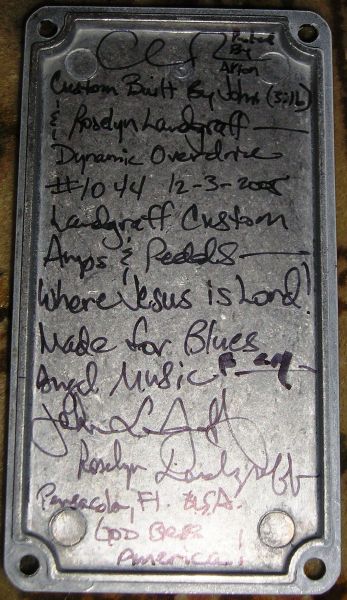 By
Arion
Custom Built By John (Bilb)
& Roselyn Landgraff
Dynamic Overdrive
#1044 12-3-2005
Landgraff Custom
Amps & Pedals
Where Jesus is Lord!
Made for Blues
Angel Music
Roselyn Landgraff
Pensacola, Fl. USA.
GOD Bless
America!